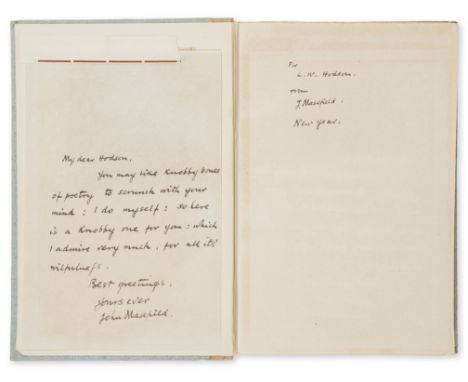 My dear Hodson,
You may like knobby bones
of poetry to scrunch with your
mind: I do myself: so here
is a knobby one for you: which
I admire very much, for all its
wilfulness.
Best greetings.
Yours ever
John Masefield.
For
L. W. Hodson.
from
J. Masefield.
New Year.